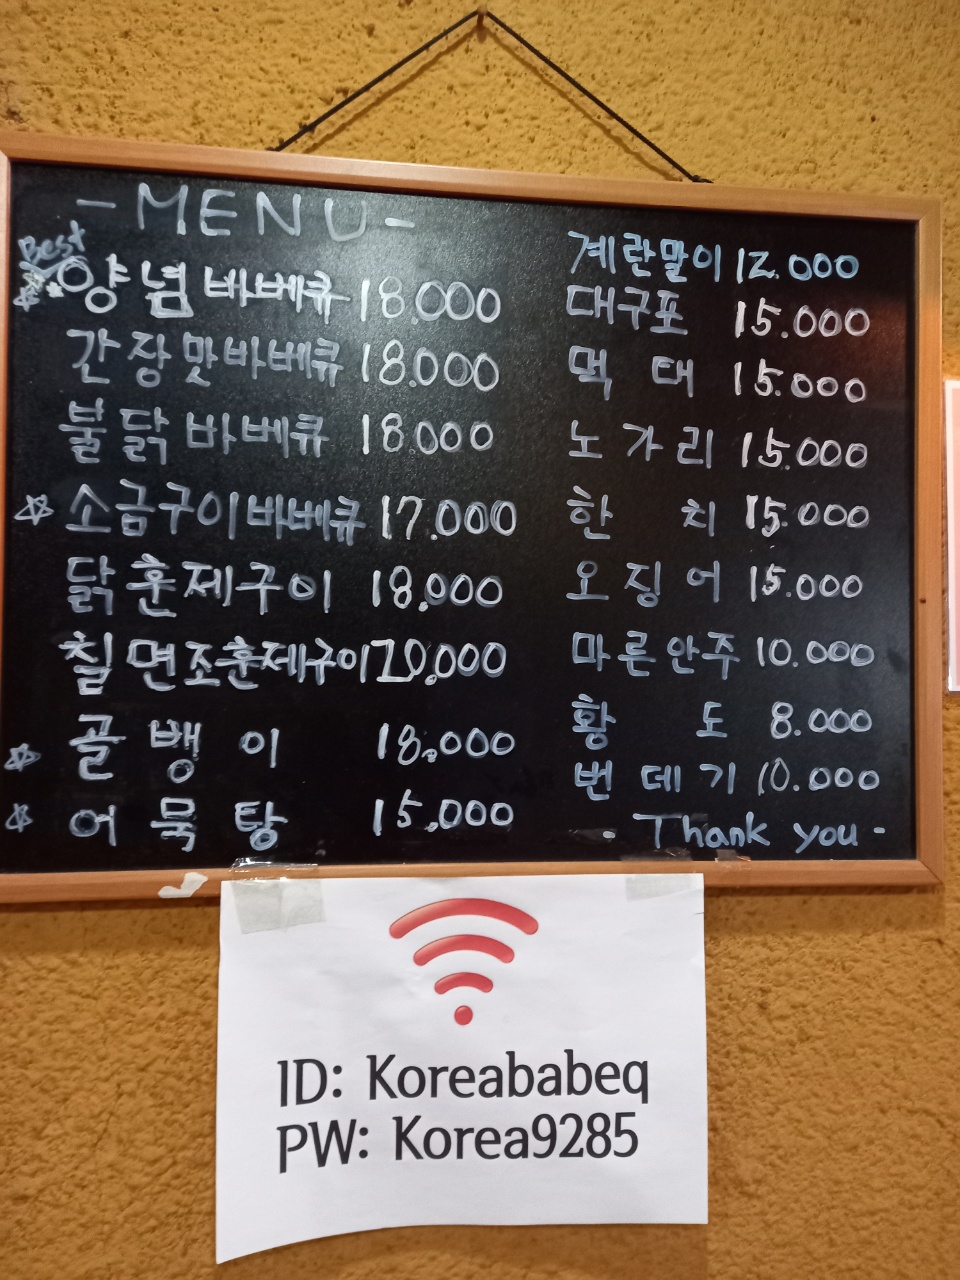 -MENU-
Best
양념바베큐 18.000
간장맛바베큐 18.000
불닭바베큐 18.000
소금구이바베큐 17.000
닭훈제구이 18.000
칠면조훈제구이 20.000
골뱅이 18.000
어묵탕 15.000
계란말이 12.000
대구포 15.000
먹태 15.000
노가리 15.000
한치 15.000
오징어 15.000
마른안주 10.000
황도 8.000
번데기 10.000
- Thank you -
ID: Koreababeq
PW: Korea9285